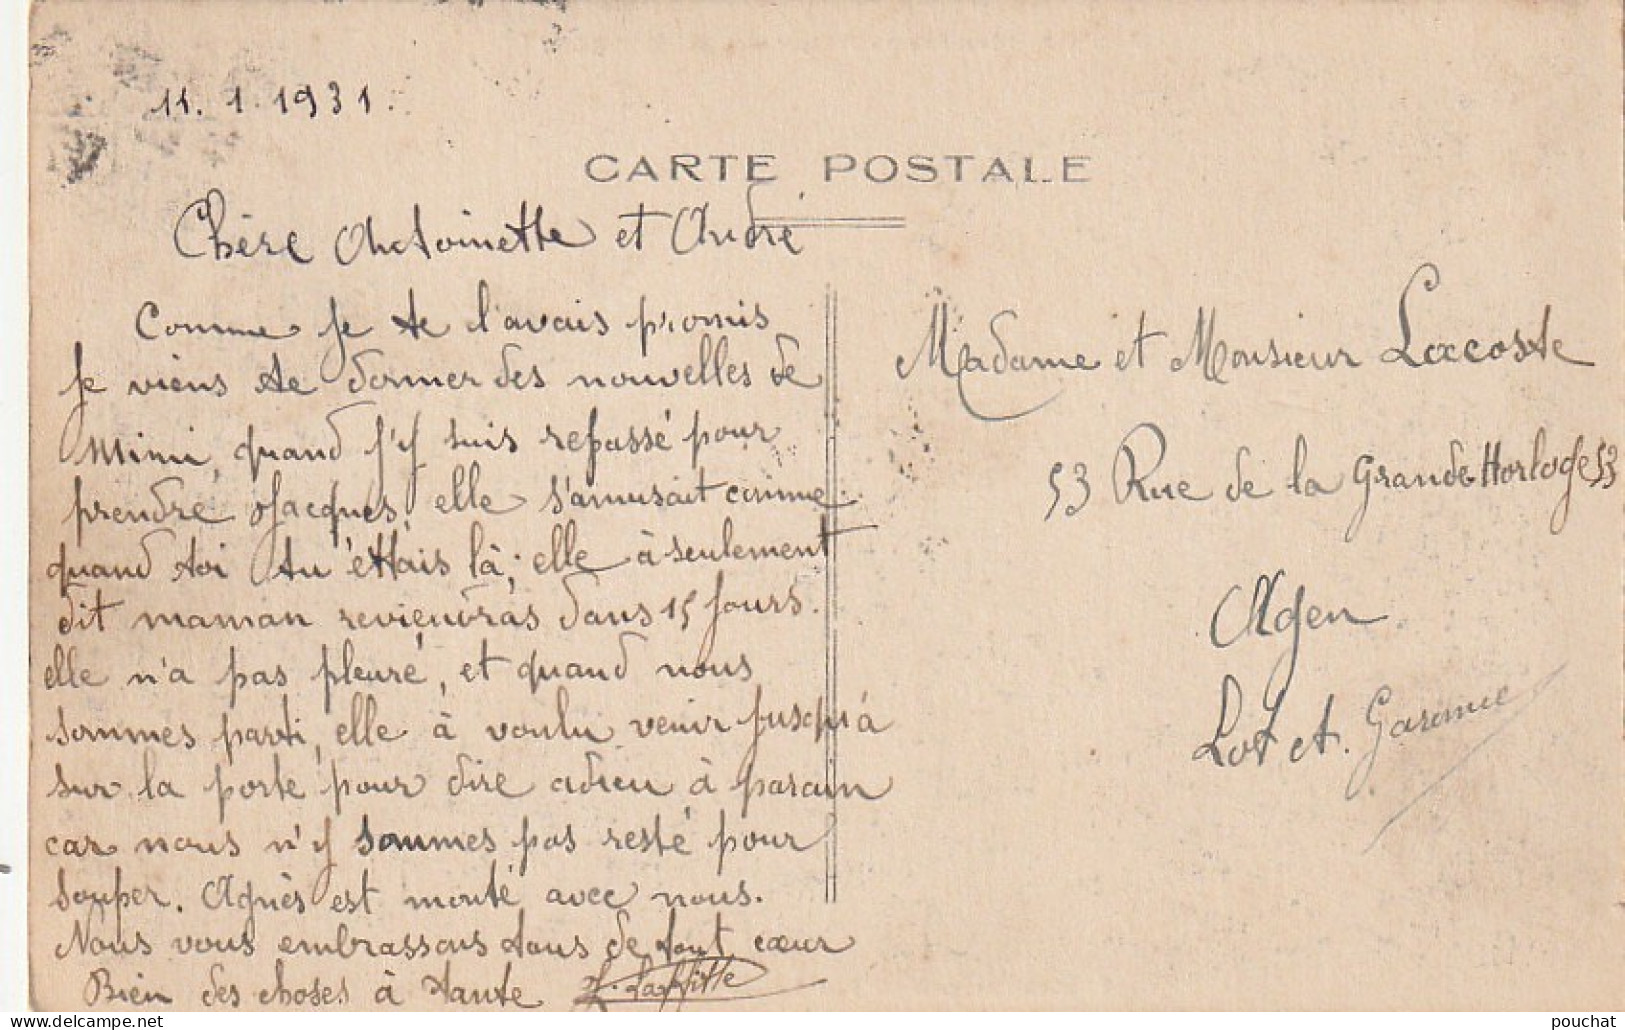 11. 1. 1931.
CARTE POSTALE
Chère Antoinette et André
Comme je te l'avais promis
je viens te donner des nouvelles de
Mimi, quand j'y suis repassé pour
prendre Jacques, elle s'amusait comme
quand toi tu éttais là; elle à seulement
dit maman reviendras dans 15 jours.
elle n'a pas pleuré, et quand nous
sommes parti, elle à voulu venir jusqu'à
sur la porte pour dire adieu à parain
car nous n'y sommes pas resté pour
souper. Agnès est monté avec nous.
Nous vous embrassons tous de tout cœur
Bien des choses à tante
Laffitte
Madame et Monsieur Lacoste
53 Rue de la Grande Horloge 53
Agen
Lot et. Garonne
pouchat